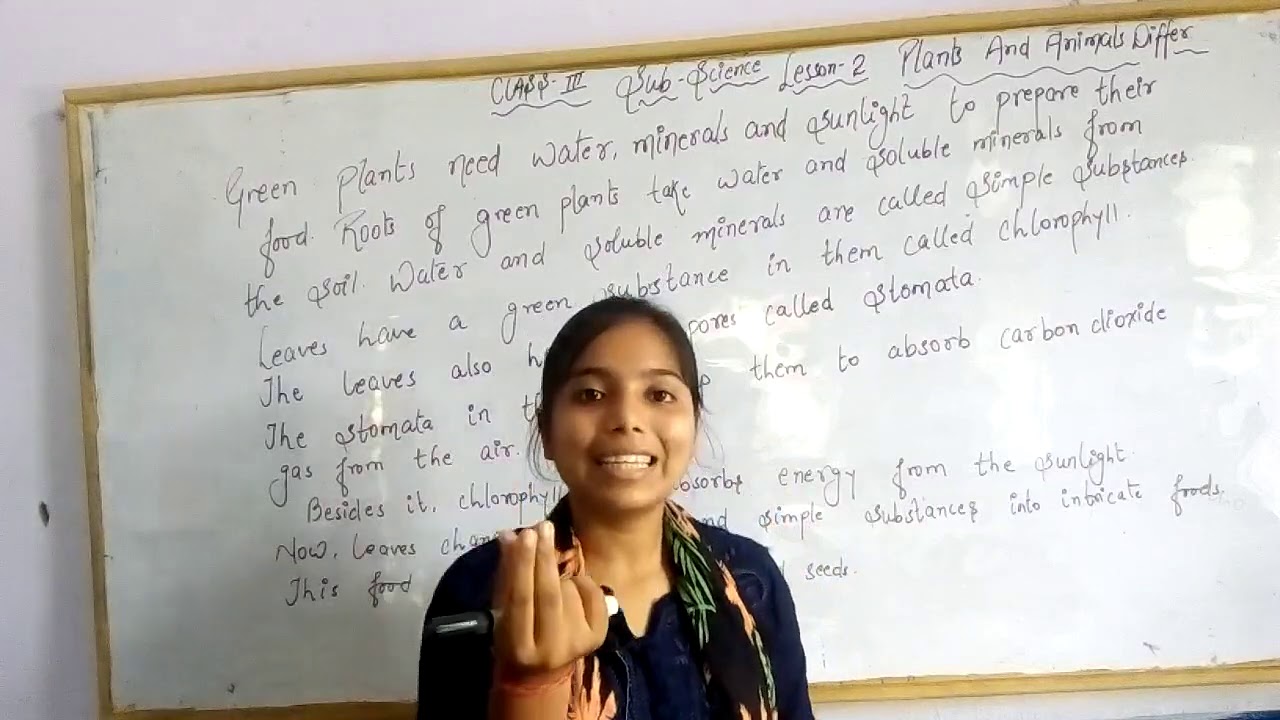 CLASS-III Sub-Science Lesson-2 Plants And Animals Differ
Green plants need water, minerals and sunlight to prepare their
food. Roots of green plants take water and soluble minerals from
the soil. Water and soluble minerals are called simple substances.
Leaves have a green substance in them called chlorophyll.
The leaves also pores called stomata.
The stomata in them to absorb carbon dioxide
gas from the air.
Besides it, chlorophyll absorbs energy from the sunlight.
Now, leaves and simple substances into intricate foods.
This food seeds.